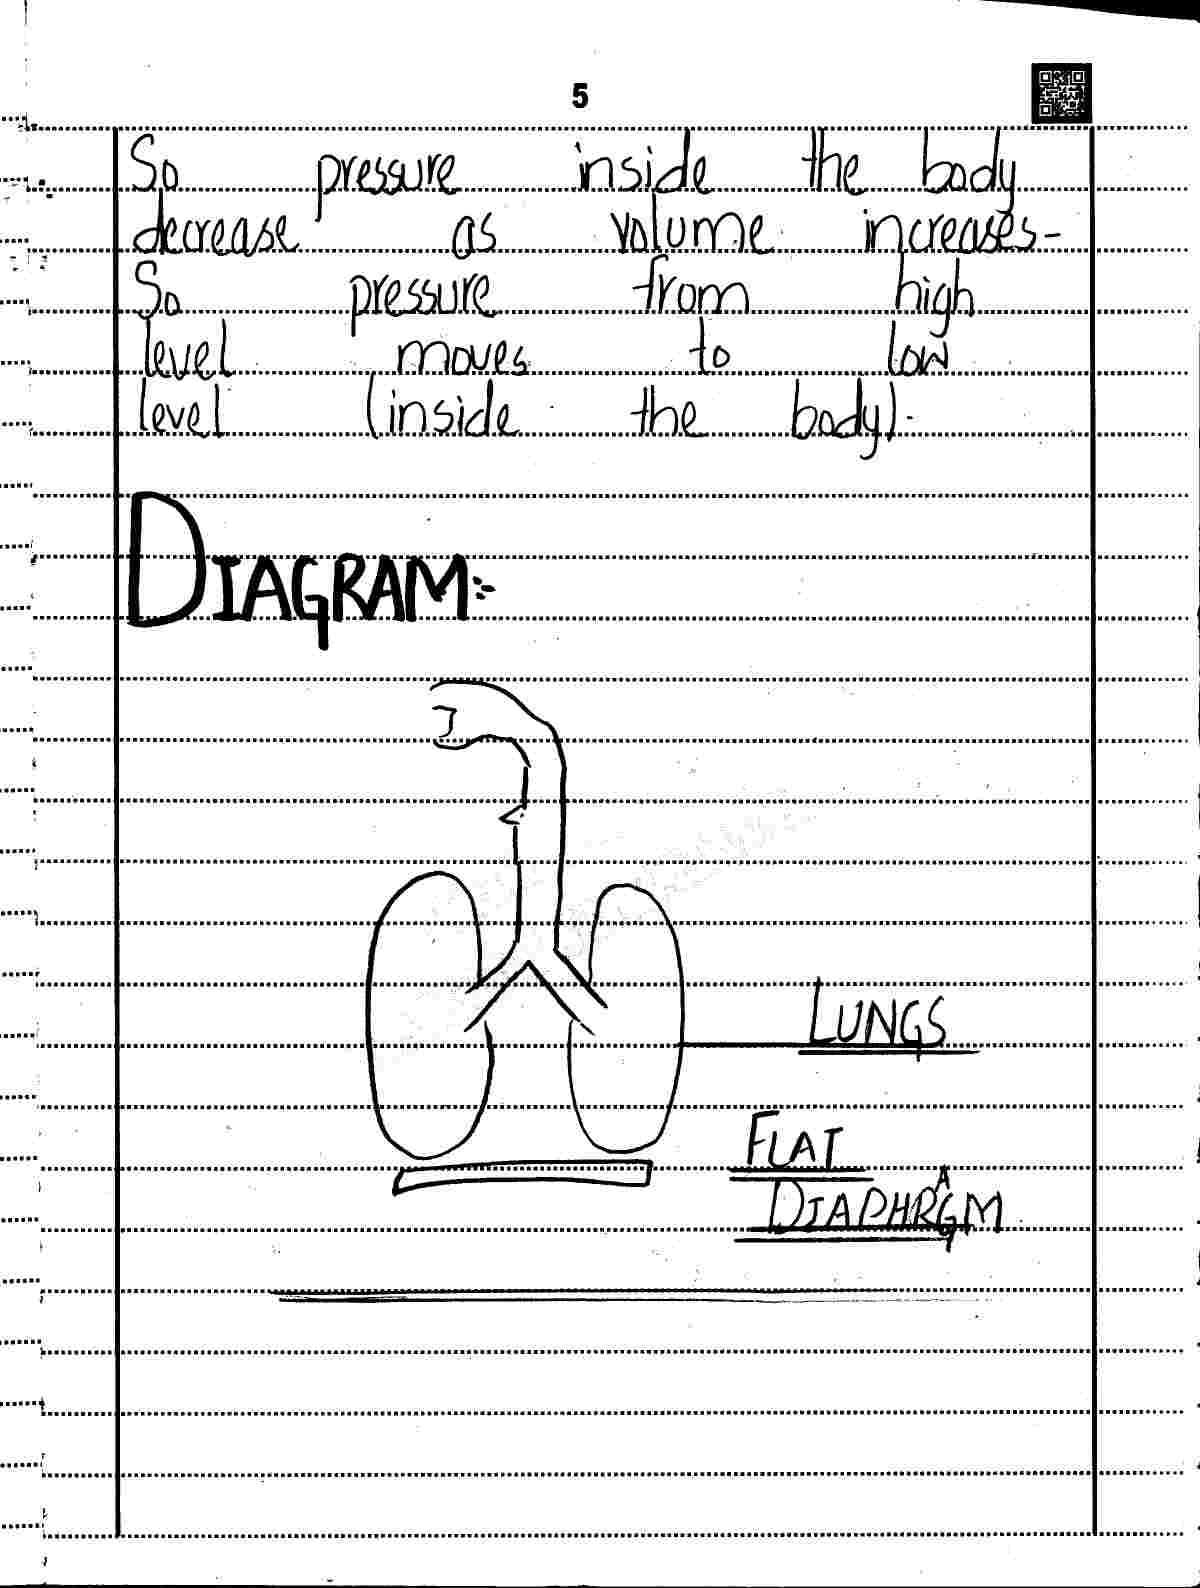 5
So pressure inside the body
decrease as volume increases-
So pressure from high
level moves to low
level (inside the body).
DIAGRAM:-
LUNGS
FLAT
DIAPHRAGM